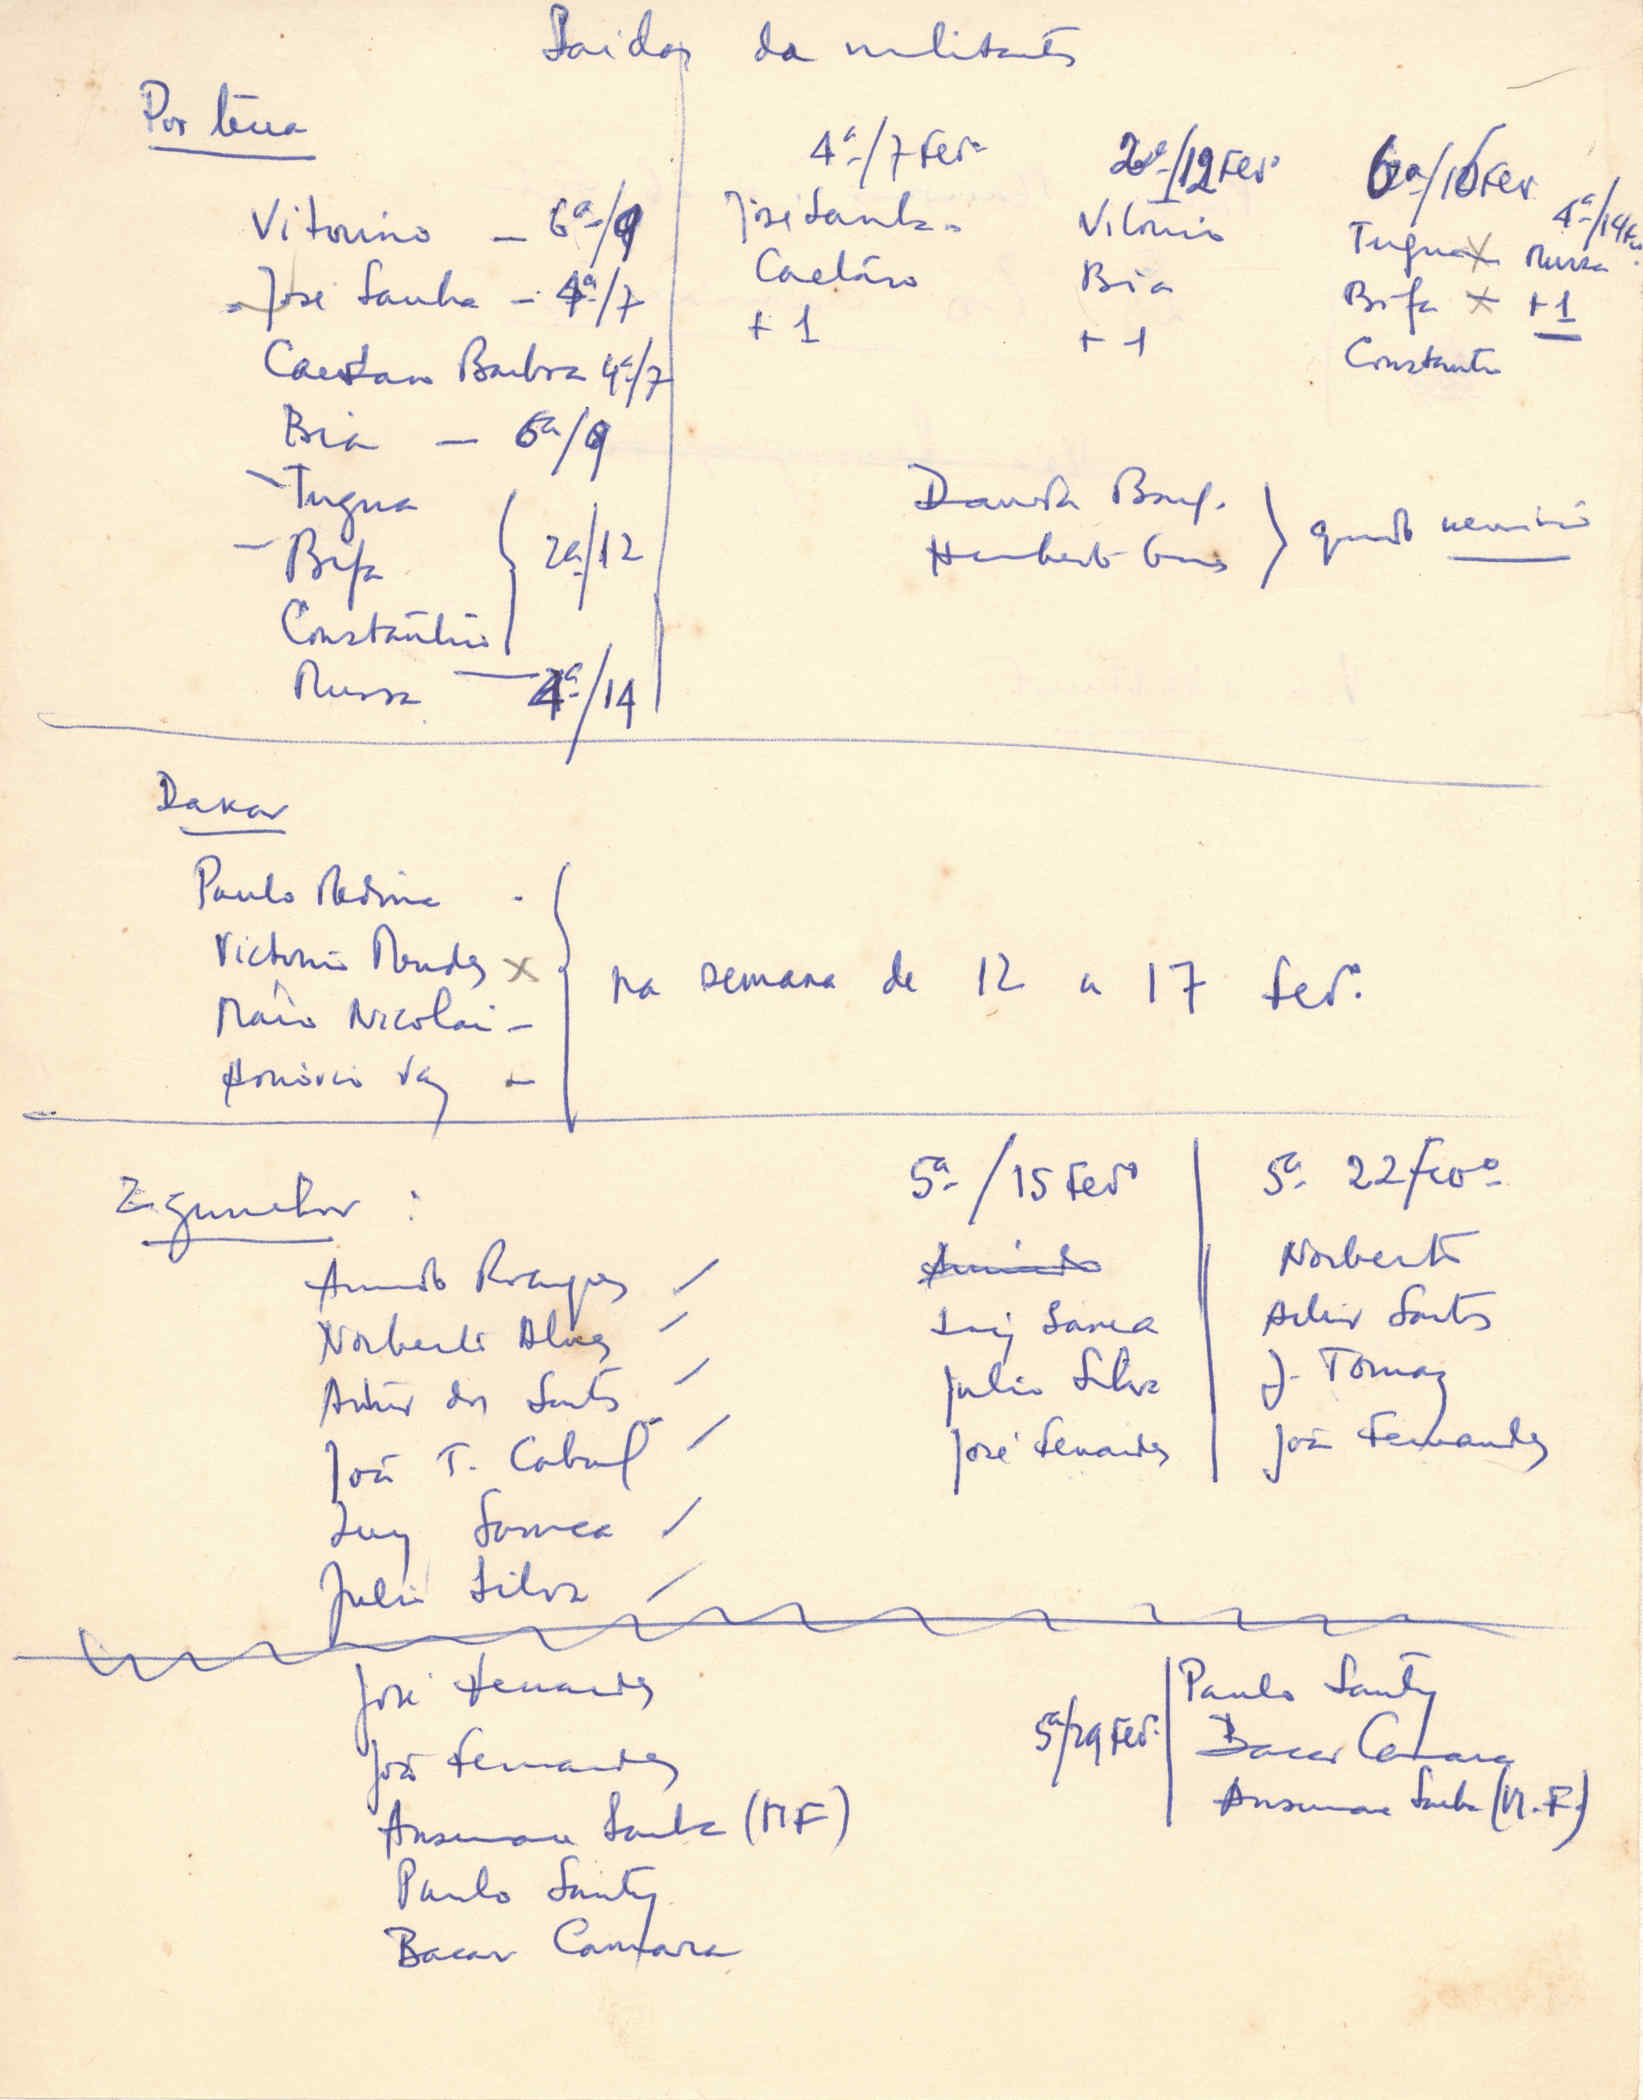 Saidas de militantes
Por terra
Vitorino — 6ª/9
José Sanha — 4ª/7
Caetano Barbosa 4ª/7
Bia — 6ª/9
Tugna
Bifa
Constantino
2ª/12
Mussa — 4ª/14
4ª/7 Fevº
José Sanha
Caetano
+ 1
2ª/12 Fevº
Vitorino
Bia
+ 1
6ª/16 Fev
Tugna x
Bifa x
Constantino
4ª/14 Fev.
Mussa
+ 1
Humberto Gomes
Dakar
Paulo Medina -
Victorino Mendes x
Mário Nicolai —
Honório Vaz —
na semana de 12 a 17 Fevº
Ziguinchor :
Armando Ramos
Norberto Alves
Artur dos Santos
João T. Cabral
Luiz Sanca
Julio Silva
5ª/15 Fevº
Armando
Luiz Sanca
Julio Silva
José Fernandes
5ª 22 Fevº
Norberto
Artur Santos
J. Tomaz
João Fernandes
José Fernandes
João Fernandes
Ansumane Sanha (MF)
Paulo Santy
Bacar Camara
5ª/29 Fevº
Paulo Santy
Bacar Camara
Ansumane Sanha (M.F.)